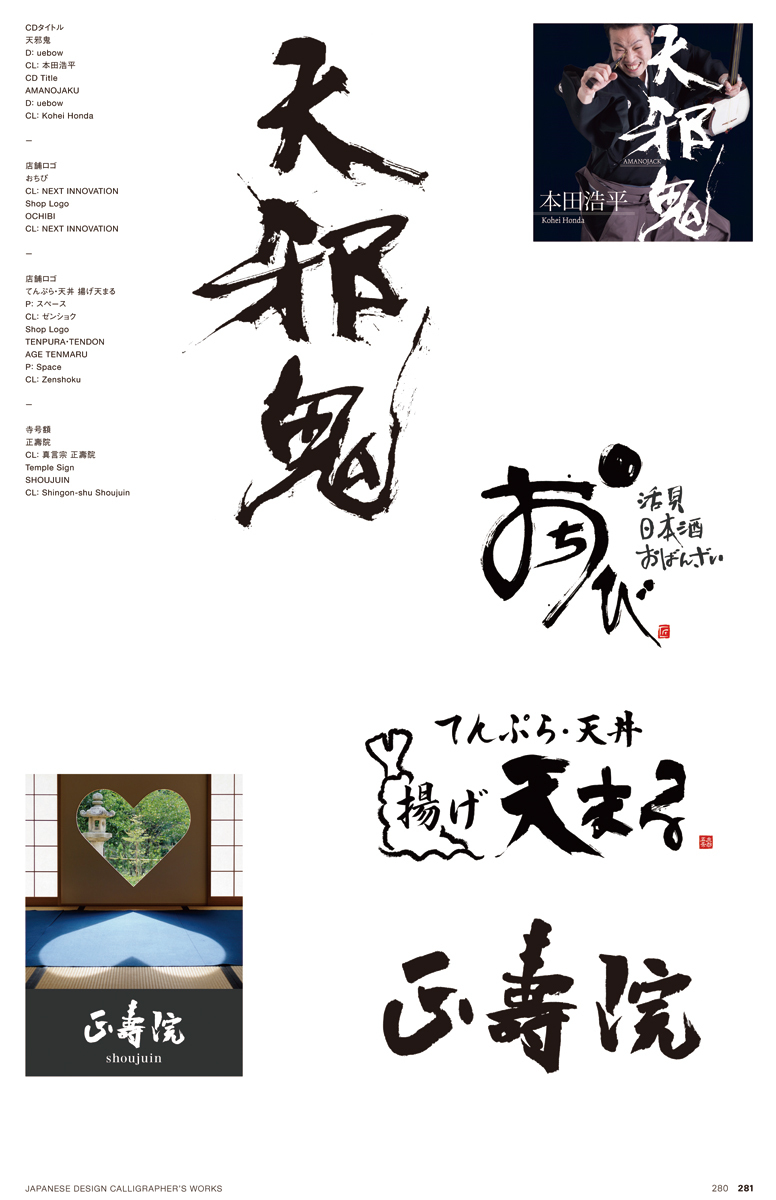 CDタイトル
天邪鬼
D: uebow
CL: 本田浩平
CD Title
AMANOJAKU
D: uebow
CL: Kohei Honda
–
店舗ロゴ
おちび
CL: NEXT INNOVATION
Shop Logo
OCHIBI
CL: NEXT INNOVATION
–
店舗ロゴ
てんぷら・天丼 揚げ天まる
P: スペース
CL: ゼンショク
Shop Logo
TENPURA・TENDON
AGE TENMARU
P: Space
CL: Zenshoku
–
寺号額
正壽院
CL: 真言宗 正壽院
Temple Sign
SHOUJUIN
CL: Shingon-shu Shoujuin
天邪鬼
天邪鬼
AMANOJACK
本田浩平
Kohei Honda
おちび
活貝
日本酒
おばんざい
てんぷら・天丼
揚げ 天まる
正壽院
shoujuin
正壽院
JAPANESE DESIGN CALLIGRAPHER'S WORKS
280 281